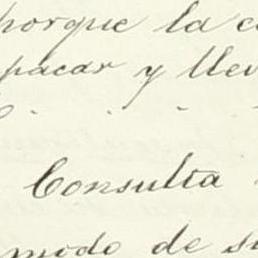 porque la c
pacar y llev
Consulta
modo de su